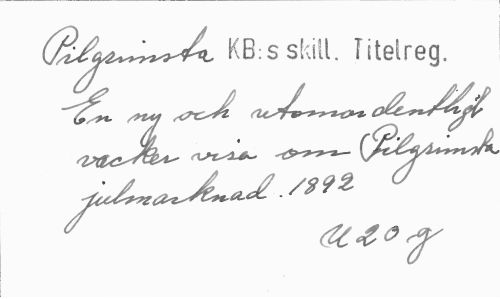 Pilgrimsta KB:s skill. Titelreg.
En ny och utomordentligt
vacker visa om Pilgrimsta
julmarknad. 1892
U 20 g